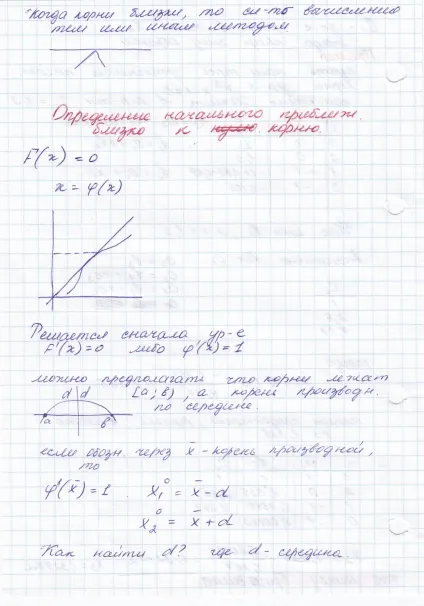 Когда корни близки, то см-то вычислению
тем или иным методом
Определение начального приближ.
близко к корню.
F(x) = 0
x = φ(x)
Решается сначала ур-е
F'(x)=0 либо φ'(x)=1
можно предполагать что корни лежат
[a; b), а корень производн.
по середине.
d d
a b
если обозн. через x̄ - корень производной,
то
φ'(x̄)=1. x₁⁰ = x̄ - d
x₂⁰ = x̄ + d
Как найти d? где d - середина